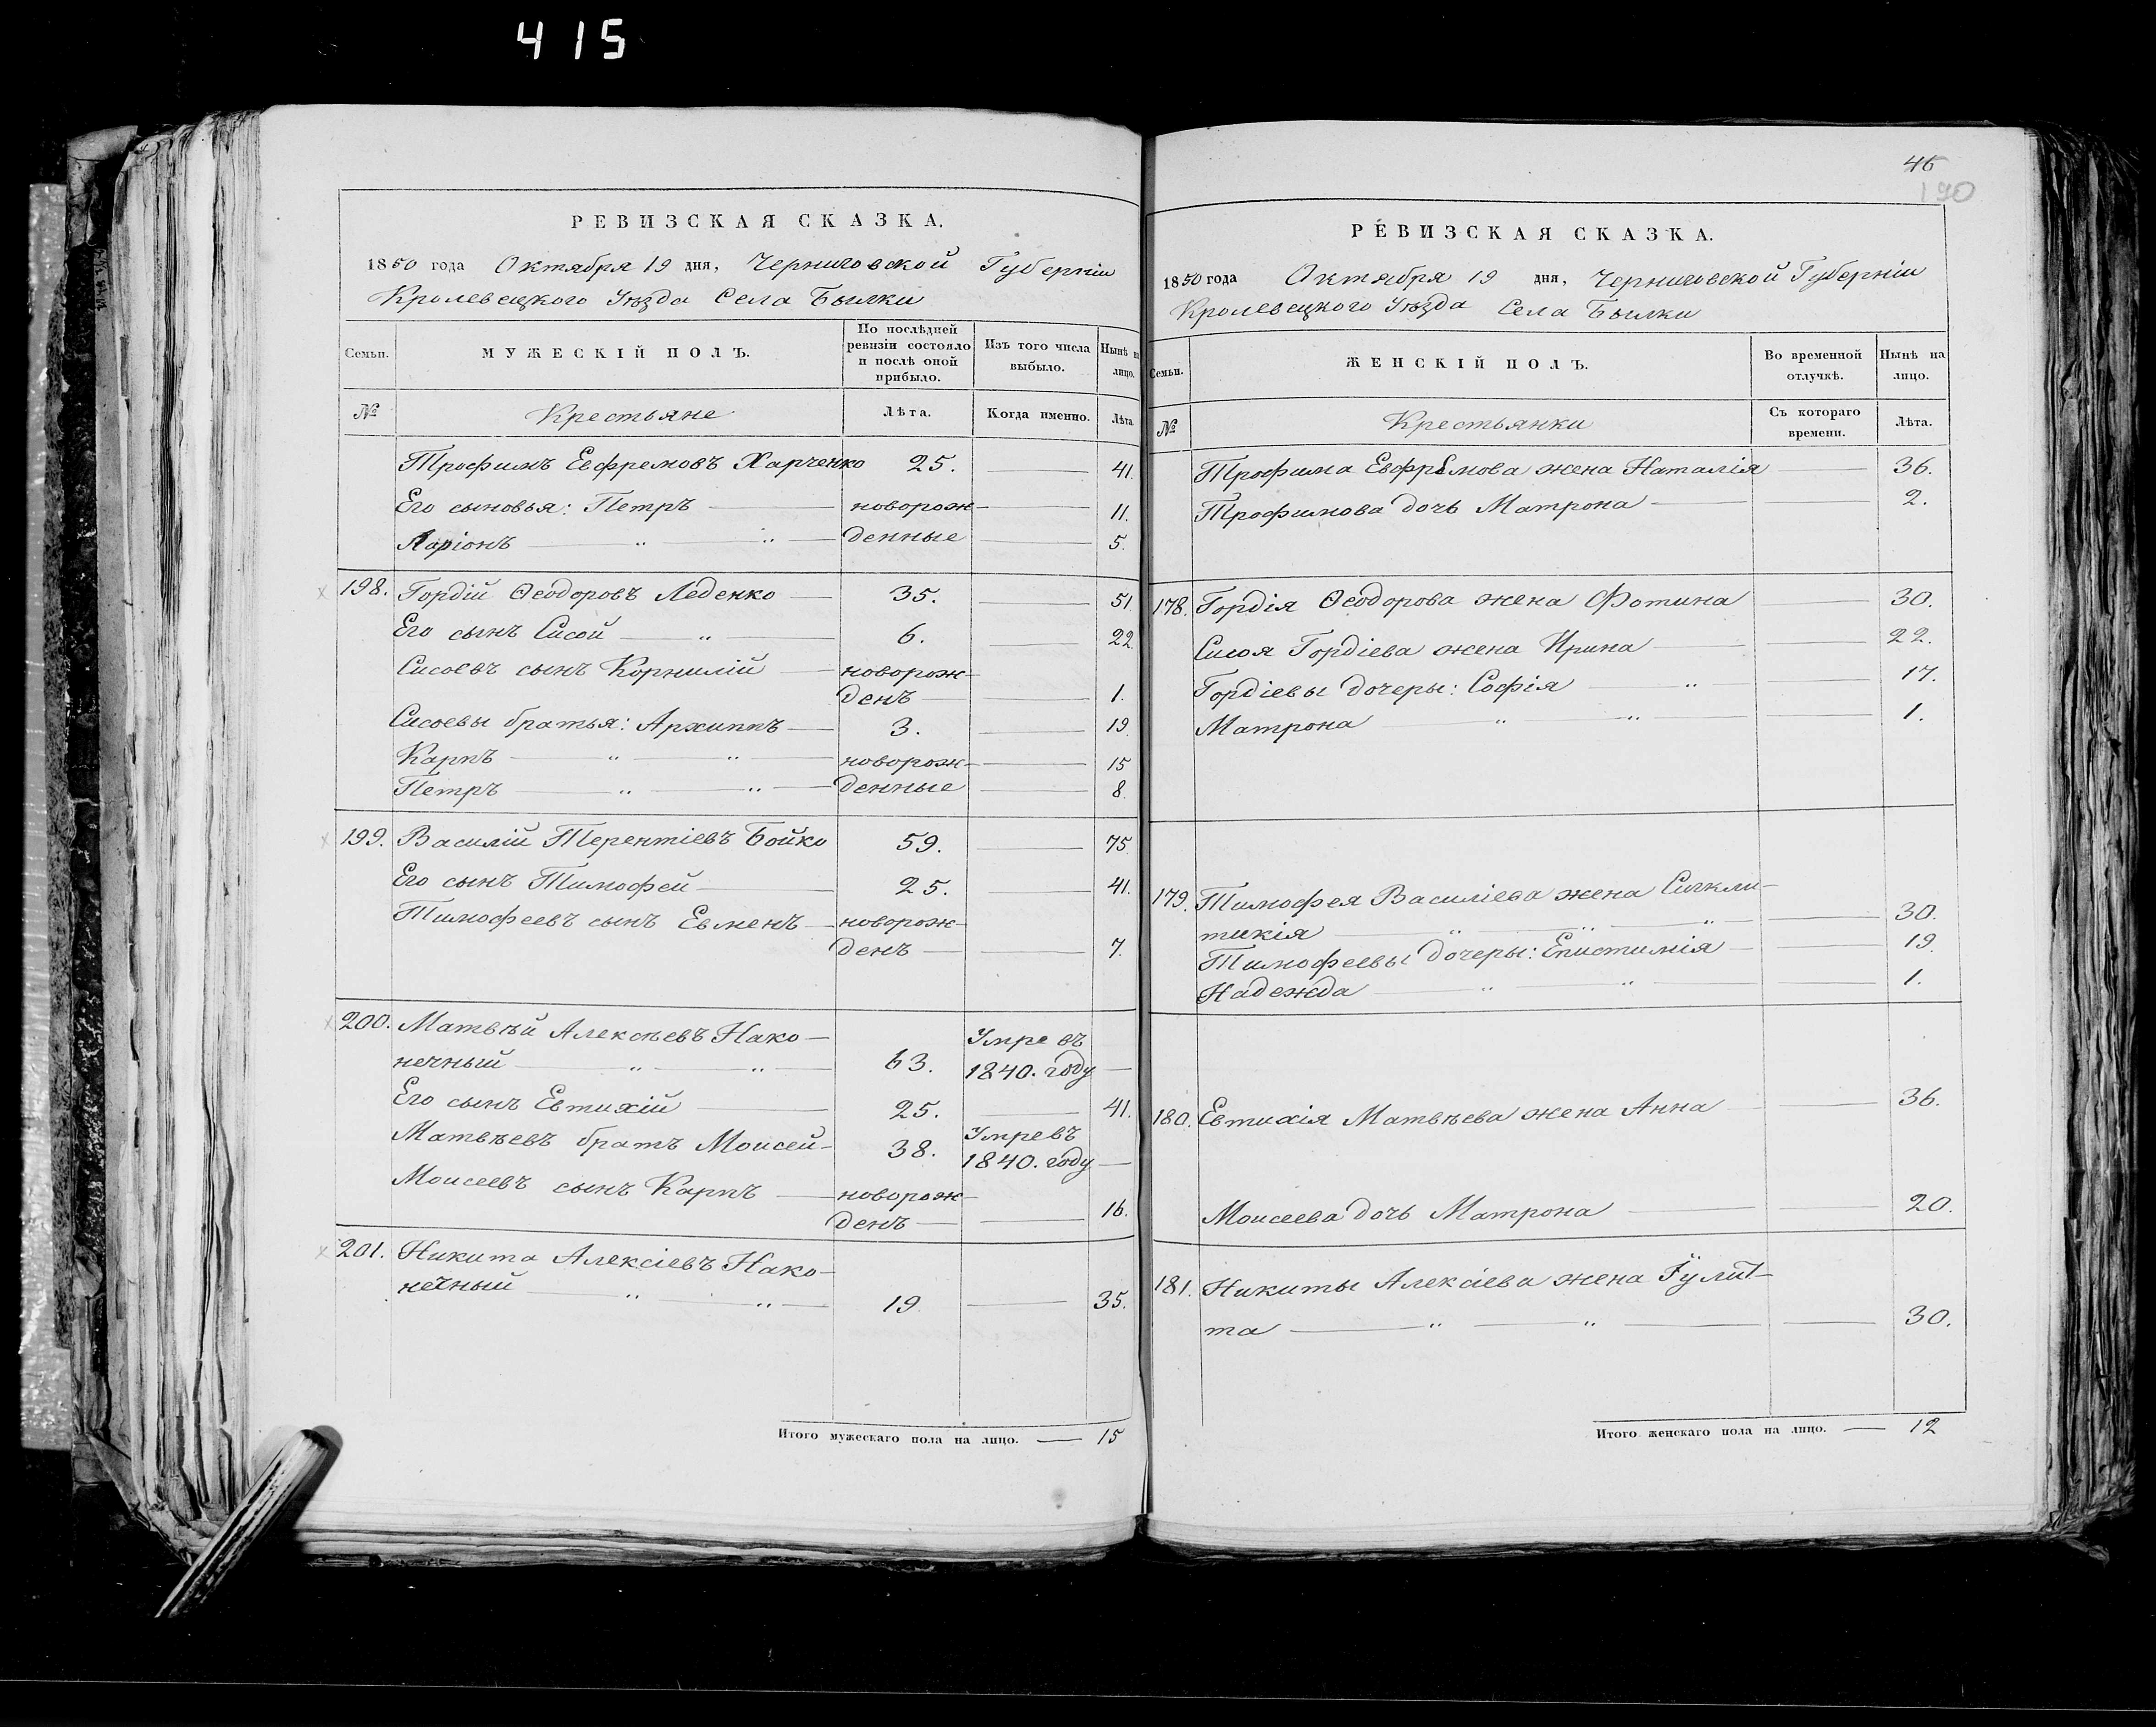 415
РЕВИЗСКАЯ СКАЗКА.
1850 года Октября 19 дня, Черниговской Губерніи
Кролевецкого Уѣзда Села Былки
Семьи.
МУЖЕСКІЙ ПОЛЪ.
По послѣдней
ревизіи состояло
и послѣ оной
прибыло.
Изъ того числа
выбыло.
Нынѣ на
лицо.
№ Крестьяне Лѣта. Когда именно. Лѣта.
Трофимъ Евфремовъ Харченко 25. — 41.
Его сыновья: Петръ — новорож- — 11.
Ларіонъ — " — " — денные — 5.
198. Гордій Ѳеодоровъ Леденко — 35. — 51.
Его сынъ Сисой — " — 6. — 22.
Сисоевъ сынъ Корнилій — новорож-
денъ — 1.
Сисоевы братья: Архиппъ — 3. — 19.
Карпъ — " — " — новорож- — 15
Петръ — " — " — денные — 8.
199. Василій Терентіевъ Бойко 59. — 75
Его сынъ Тимофей — 25. — 41.
Тимофеевъ сынъ Евменъ — новорож-
денъ — 7.
200. Матвѣй Алексѣевъ Нако- Умре въ
нечный — " — " — 63. 1840. году —
Его сынъ Евтихій — 25. — 41.
Матвѣевъ братъ Моисей- 38. Умре въ
1840. году —
Моисеевъ сынъ Карпъ — новорож-
денъ — 16.
201. Никита Алексіевъ Нако-
нечный — " — " — 19 — 35.
Итого мужескаго пола на лицо. — 15
46
190
РЕВИЗСКАЯ СКАЗКА.
1850 года Октября 19 дня, Черниговской Губерніи
Кролевецкого Уѣзда Села Былки
Семьи.
ЖЕНСКІЙ ПОЛЪ.
Во временной
отлучкѣ.
Нынѣ на
лицо.
№ Крестьянки
Съ котораго
времени.
Лѣта.
Трофима Евфремова жена Наталія — 36.
Трофимова дочь Матрона — 2.
178. Гордія Ѳеодорова жена Фотина — 30.
Сисоя Гордіева жена Ирина — 22.
Гордіевы дочеры: Софія — " — 17.
Матрона " — " — 1.
179. Тимофея Василіева жена Сигкли-
тикія — " — " — " — 30.
Тимофеевы дочеры: Епистимія — 19.
Надежда — " — " — 1.
180. Евтихія Матвѣева жена Анна — 36.
Моисеева дочь Матрона — 20.
181. Никиты Алексіева жена Іулит-
та — " — " — 30.
Итого женскаго пола на лицо. — 12